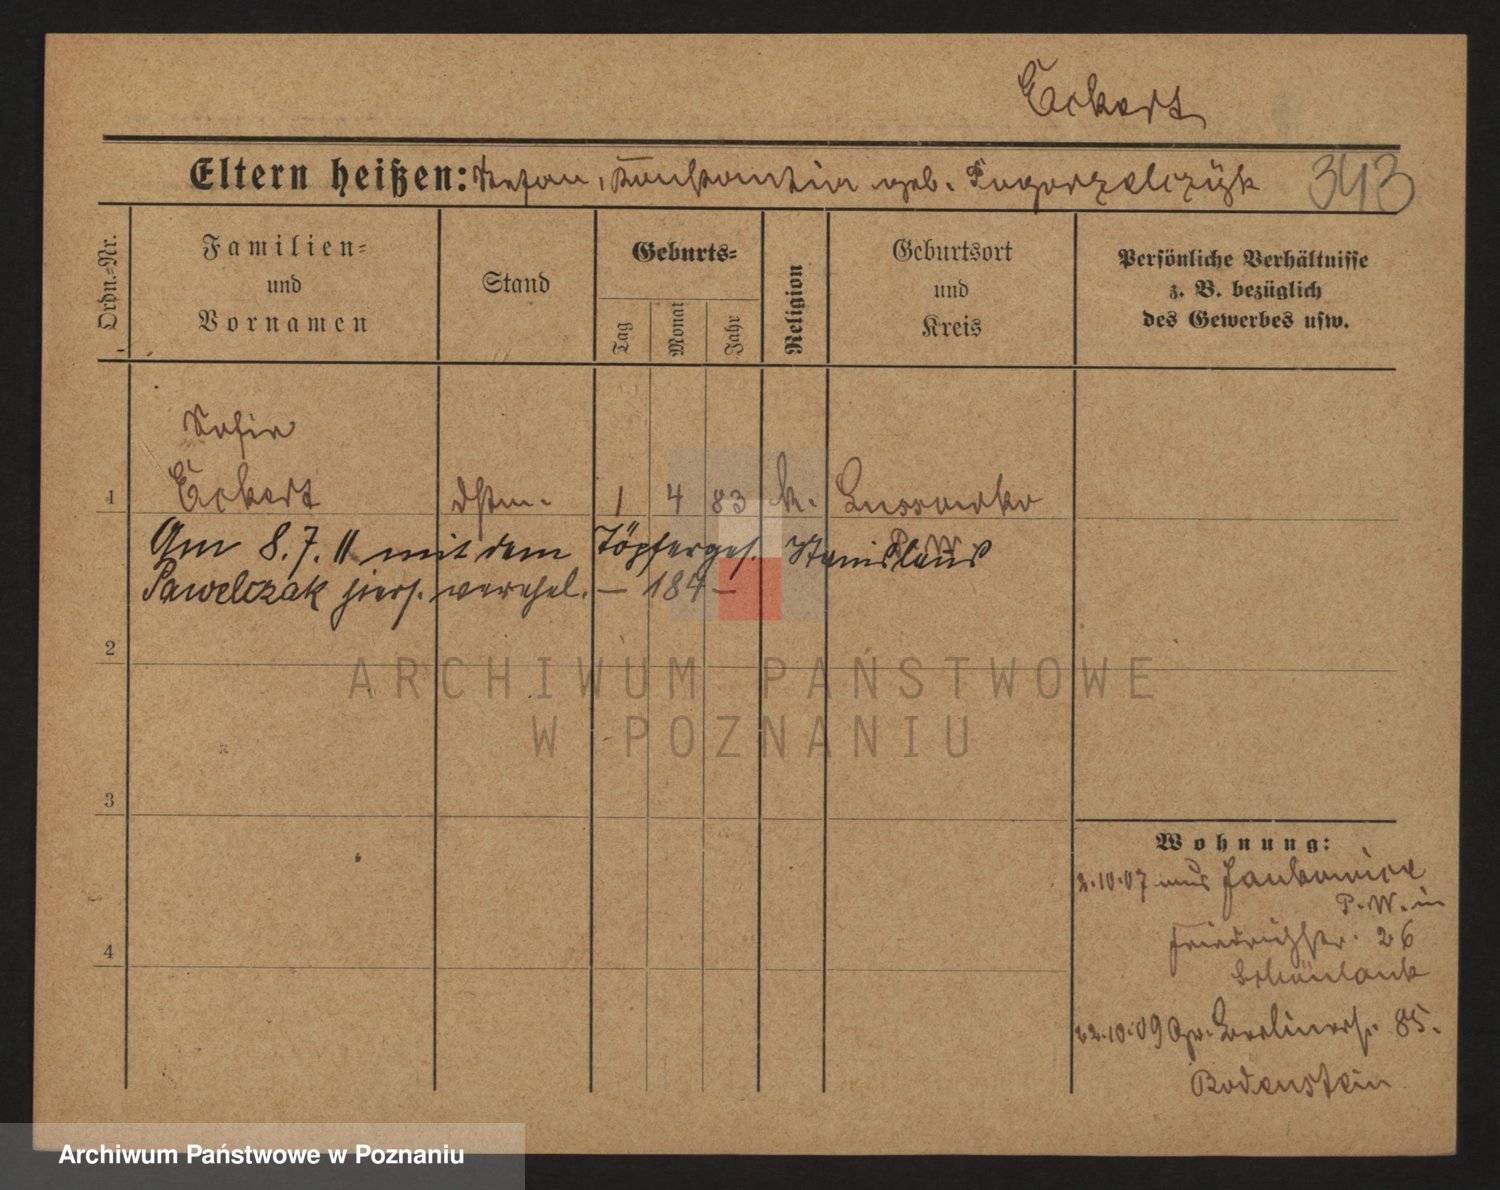 Eckert
Eltern heißen: Stefan, Konstantin geb. Pogorzelczyk 343
Ordn.=Nr.
Familien=
und
Vornamen
Stand
Geburts=
Tag
Monat
Jahr
Religion
Geburtsort
und
Kreis
Persönliche Verhältnisse
z. B. bezüglich
des Gewerbes usw.
Sofie
1 Eckert dstm. 1 4 83 k. Lussowko
P. W.
Am 8.7.11 mit dem Töpferges. Stanislaus
Pawelczak hiers. verehel. — 184 —
2
3
4
Wohnung:
2.10.07 aus Jankowice
P. W. in
Friedrichstr. 26
Schönlank
22.10.09 Gr. Berlinerst. 85.
Bodenstein
ARCHIWUM PAŃSTWOWE
W POZNANIU
Archiwum Państwowe w Poznaniu